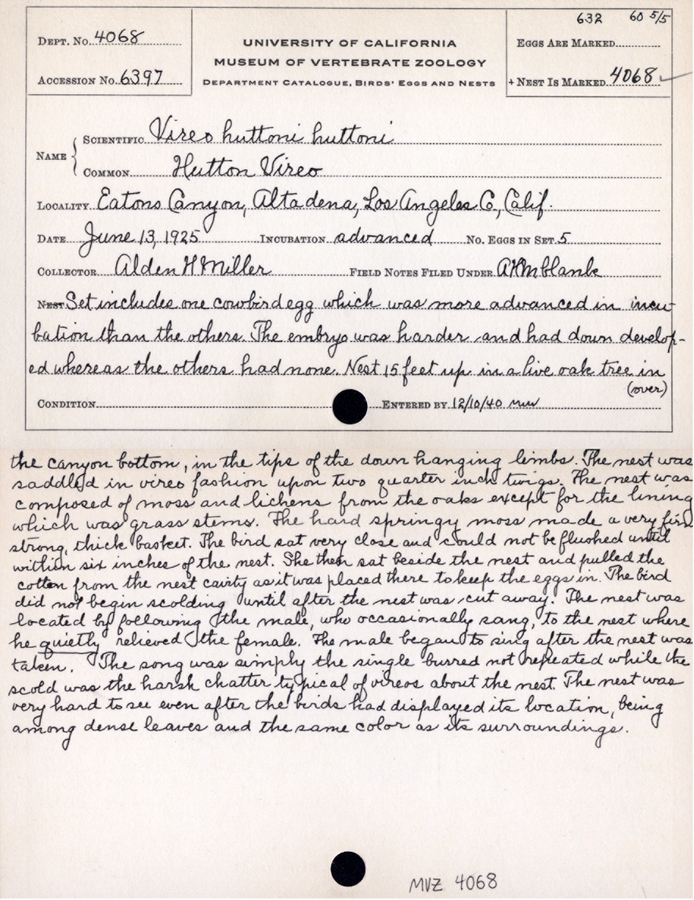 632 60 5/5
DEPT. NO. 4068
UNIVERSITY OF CALIFORNIA
MUSEUM OF VERTEBRATE ZOOLOGY
DEPARTMENT CATALOGUE, BIRDS' EGGS AND NESTS
EGGS ARE MARKED
ACCESSION NO. 6397
+ NEST IS MARKED 4068 ✓
NAME
SCIENTIFIC Vireo huttoni huttoni
COMMON Hutton Vireo
LOCALITY Eatons Canyon, Altadena, Los Angeles Co, Calif.
DATE June 13, 1925 INCUBATION advanced NO. EGGS IN SET 5
COLLECTOR Alden H Miller FIELD NOTES FILED UNDER
NEST Set includes one cowbird egg which was more advanced in incu-
bation than the others. The embryo was harder and had down develop-
ed whereas the others had none. Nest 15 feet up in a live oak tree in
(over)
CONDITION ENTERED BY 12/10/40 mw
the canyon bottom, in the tips of the down hanging limbs. The nest was
saddled in vireo fashion upon two quarter inch twigs. The nest was
composed of moss and lichens from the oaks except for the lining
which was grass stems. The hard springy moss made a very firm
strong, thick basket. The bird sat very close and could not be flushed until
within six inches of the nest. She then sat beside the nest and pulled the
cotten from the nest cavity as it was placed there to keep the eggs in. The bird
did not begin scolding until after the nest was cut away. The nest was
located by following the male, who occasionally sang, to the nest where
he quietly relieved the female. The male began to sing after the nest was
taken. The song was simply the single burred not repeated while the
scold was the harsh chatter typical of vireos about the nest. The nest was
very hard to see even after the birds had displayed its location, being
among dense leaves and the same color as its surroundings.
MVZ 4068